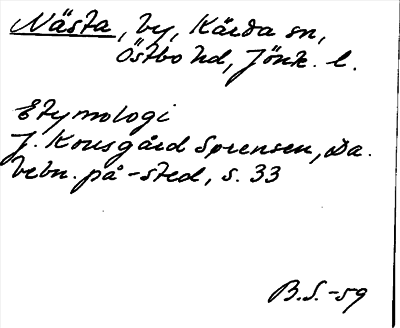 Nästa, by, Kärda sn,
Östbo hd, Jönk. l.
Etymologi
J. Kousgård Sørensen, Da.
bebn. på -sted, s. 33
B.S. -59